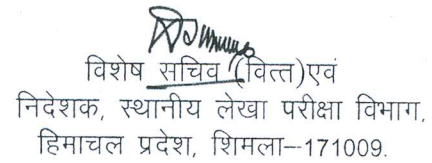 विशेष सचिव (वित्त)एवं
निदेशक, स्थानीय लेखा परीक्षा विभाग,
हिमाचल प्रदेश, शिमला–171009.